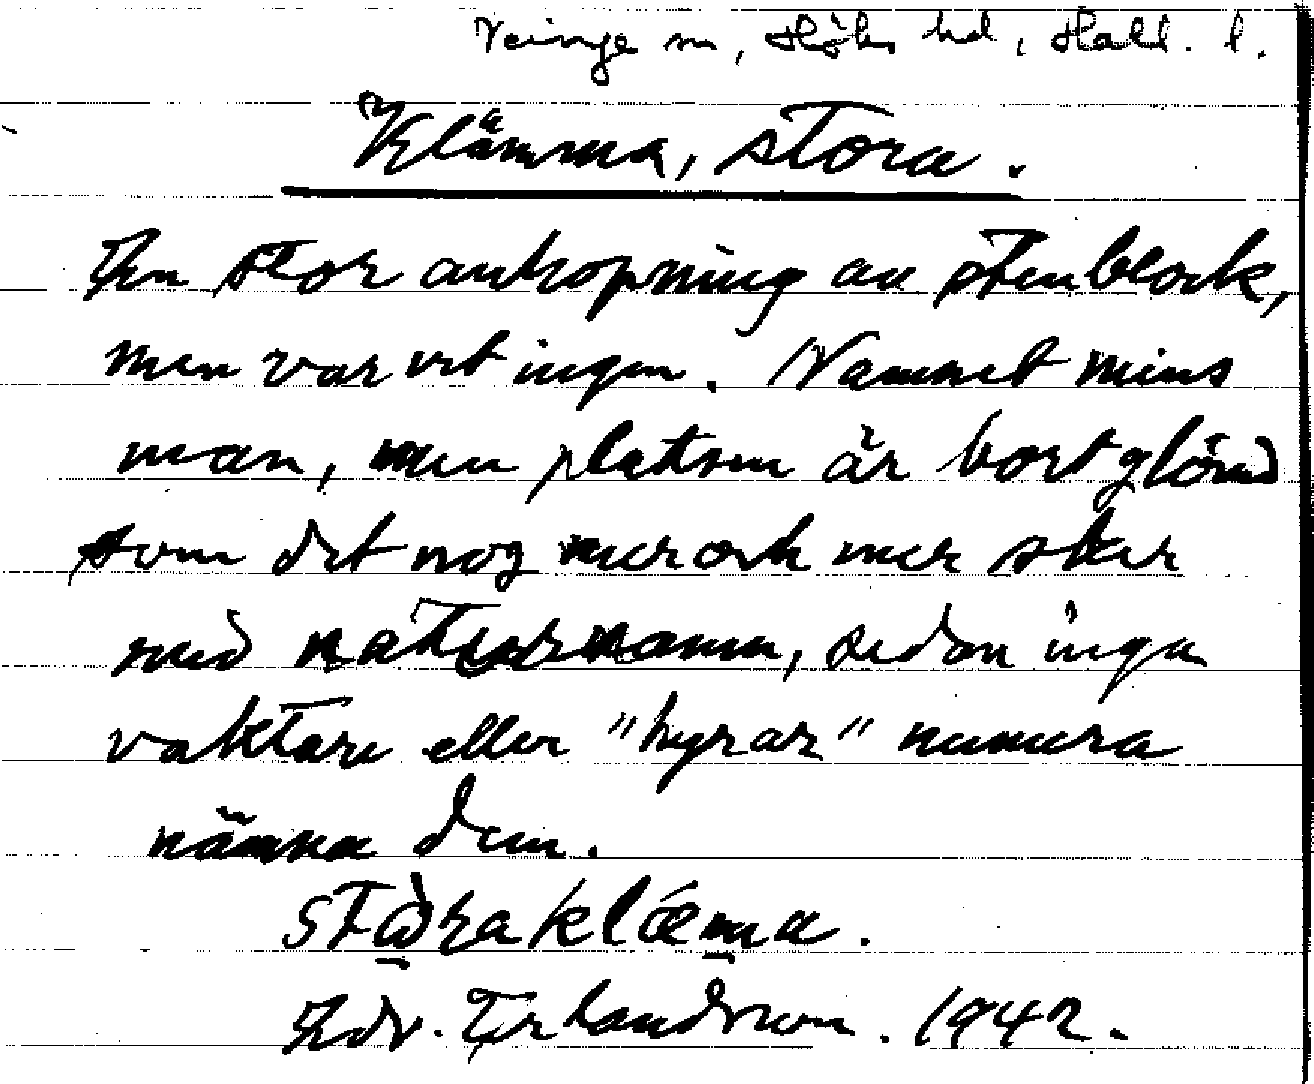 Veinge sn, Höks hd, Hall. l.
Klämma, stora.
En stor anhopning av stenblock,
men var vet ingen. Namnet mins
man, men platsen är bortglömd
som det nog mer och mer sker
med naturnamn, sedan inga
vaktare eller "hyrar" numera
nämna dem.
Edv. Erlandsson. 1942.